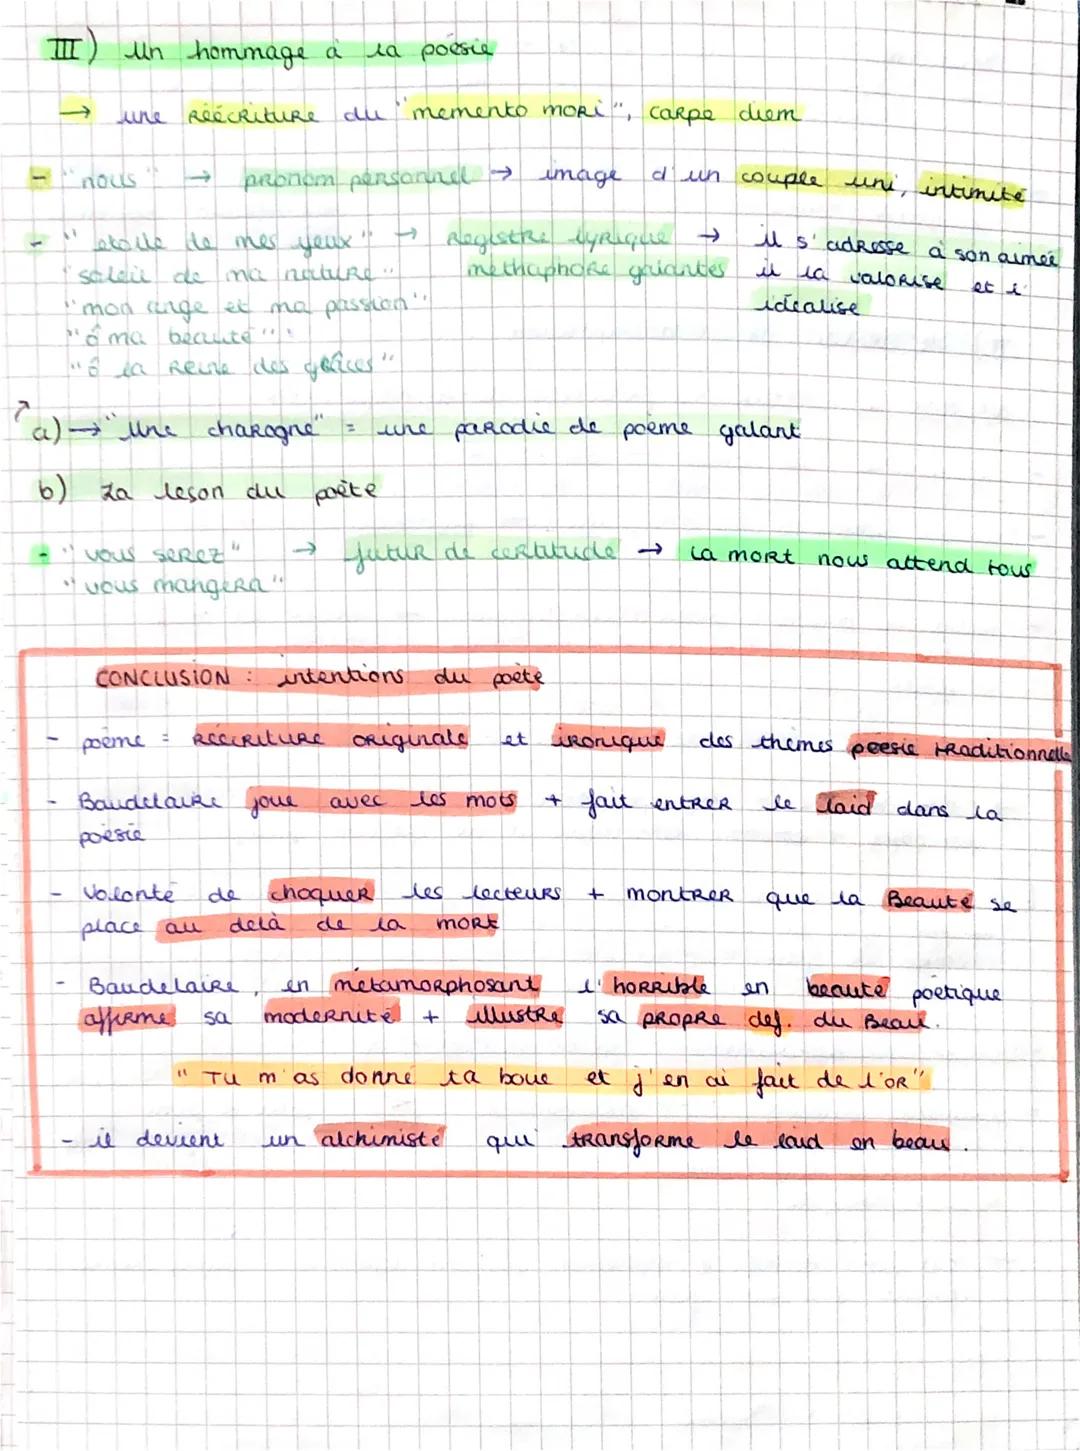 III) Un hommage à la poésie
→ une réécriture du "memento mori", carpe diem
- "nous" → pronom personnel → image d'un couple uni, intimité
- "etoile de mes yeux" → Registre lyrique → il s'adresse à son aimée
"soleil de ma nature" méthaphore galantes il la valorise et l'
"mon ange et ma passion" idéalise
"ô ma beauté"
"ô la reine des grâces"
a) → "Une charogne" = une parodie de poème galant
b) La leson du poète
- "vous serez" → futur de certitude → La mort nous attend tous
"vous mangera"
CONCLUSION : intentions du poète
- poème = réécriture originale et ironique des thèmes poesie traditionnelle
- Baudelaire joue avec les mots + fait entrer le laid dans la
poésie
- Volonté de choquer les lecteurs + montrer que la Beauté se
place au delà de la mort
- Baudelaire, en métamorphosant l'horrible en beauté poétique
affirme sa modernité + illustre sa propre def. du Beau.
"Tu m'as donné ta boue et j'en ai fait de l'or"
- il devient un alchimiste qui transforme le laid en beau.